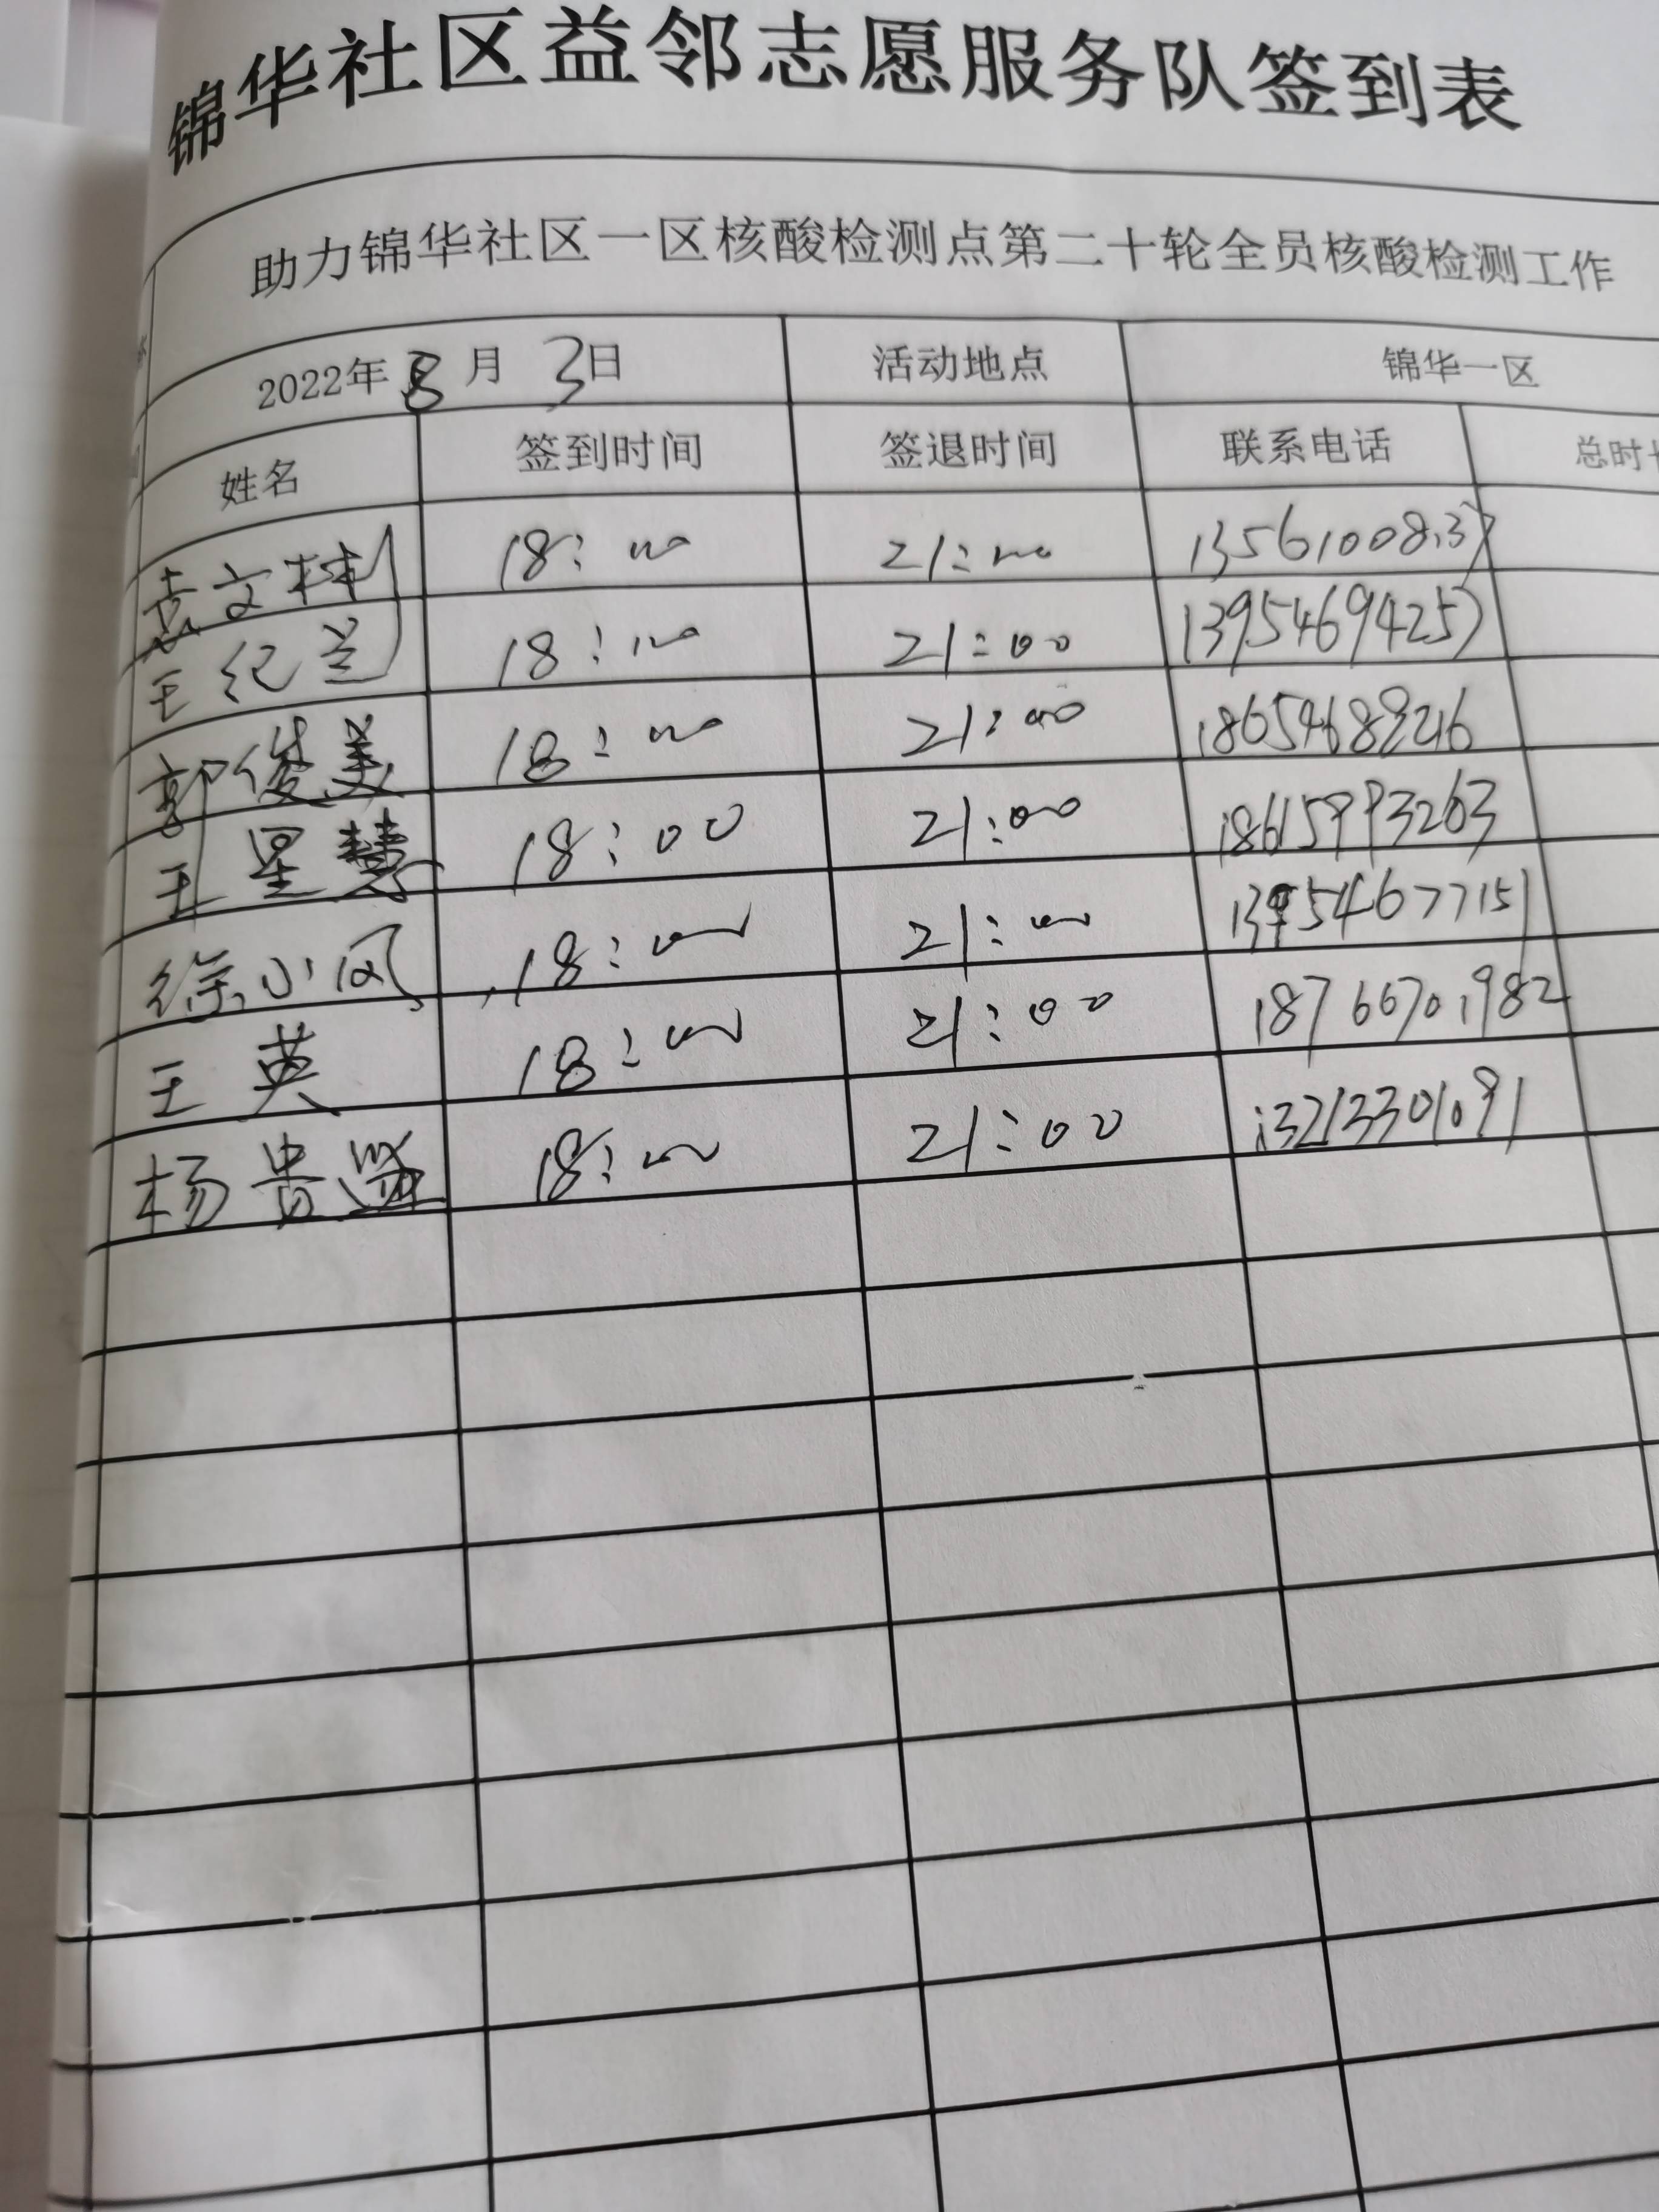 锦华社区益邻志愿服务队签到表
助力锦华社区一区核酸检测点第二十轮全员核酸检测工作
2022年8月3日 活动地点 锦华一区
姓名 签到时间 签退时间 联系电话 总时
袁文林 18:00 21:00 13561008137
王纪兰 18:00 21:00 13954694257
郭俊美 18:00 21:00 18654689216
王星慧 18:00 21:00 18615993263
徐小风 18:00 21:00 13954677151
王英 18:00 21:00 18766701982
杨贵 18:00 21:00 13213301091